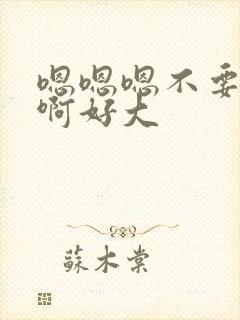 嗯嗯嗯不要
啊好大
蘇木棠